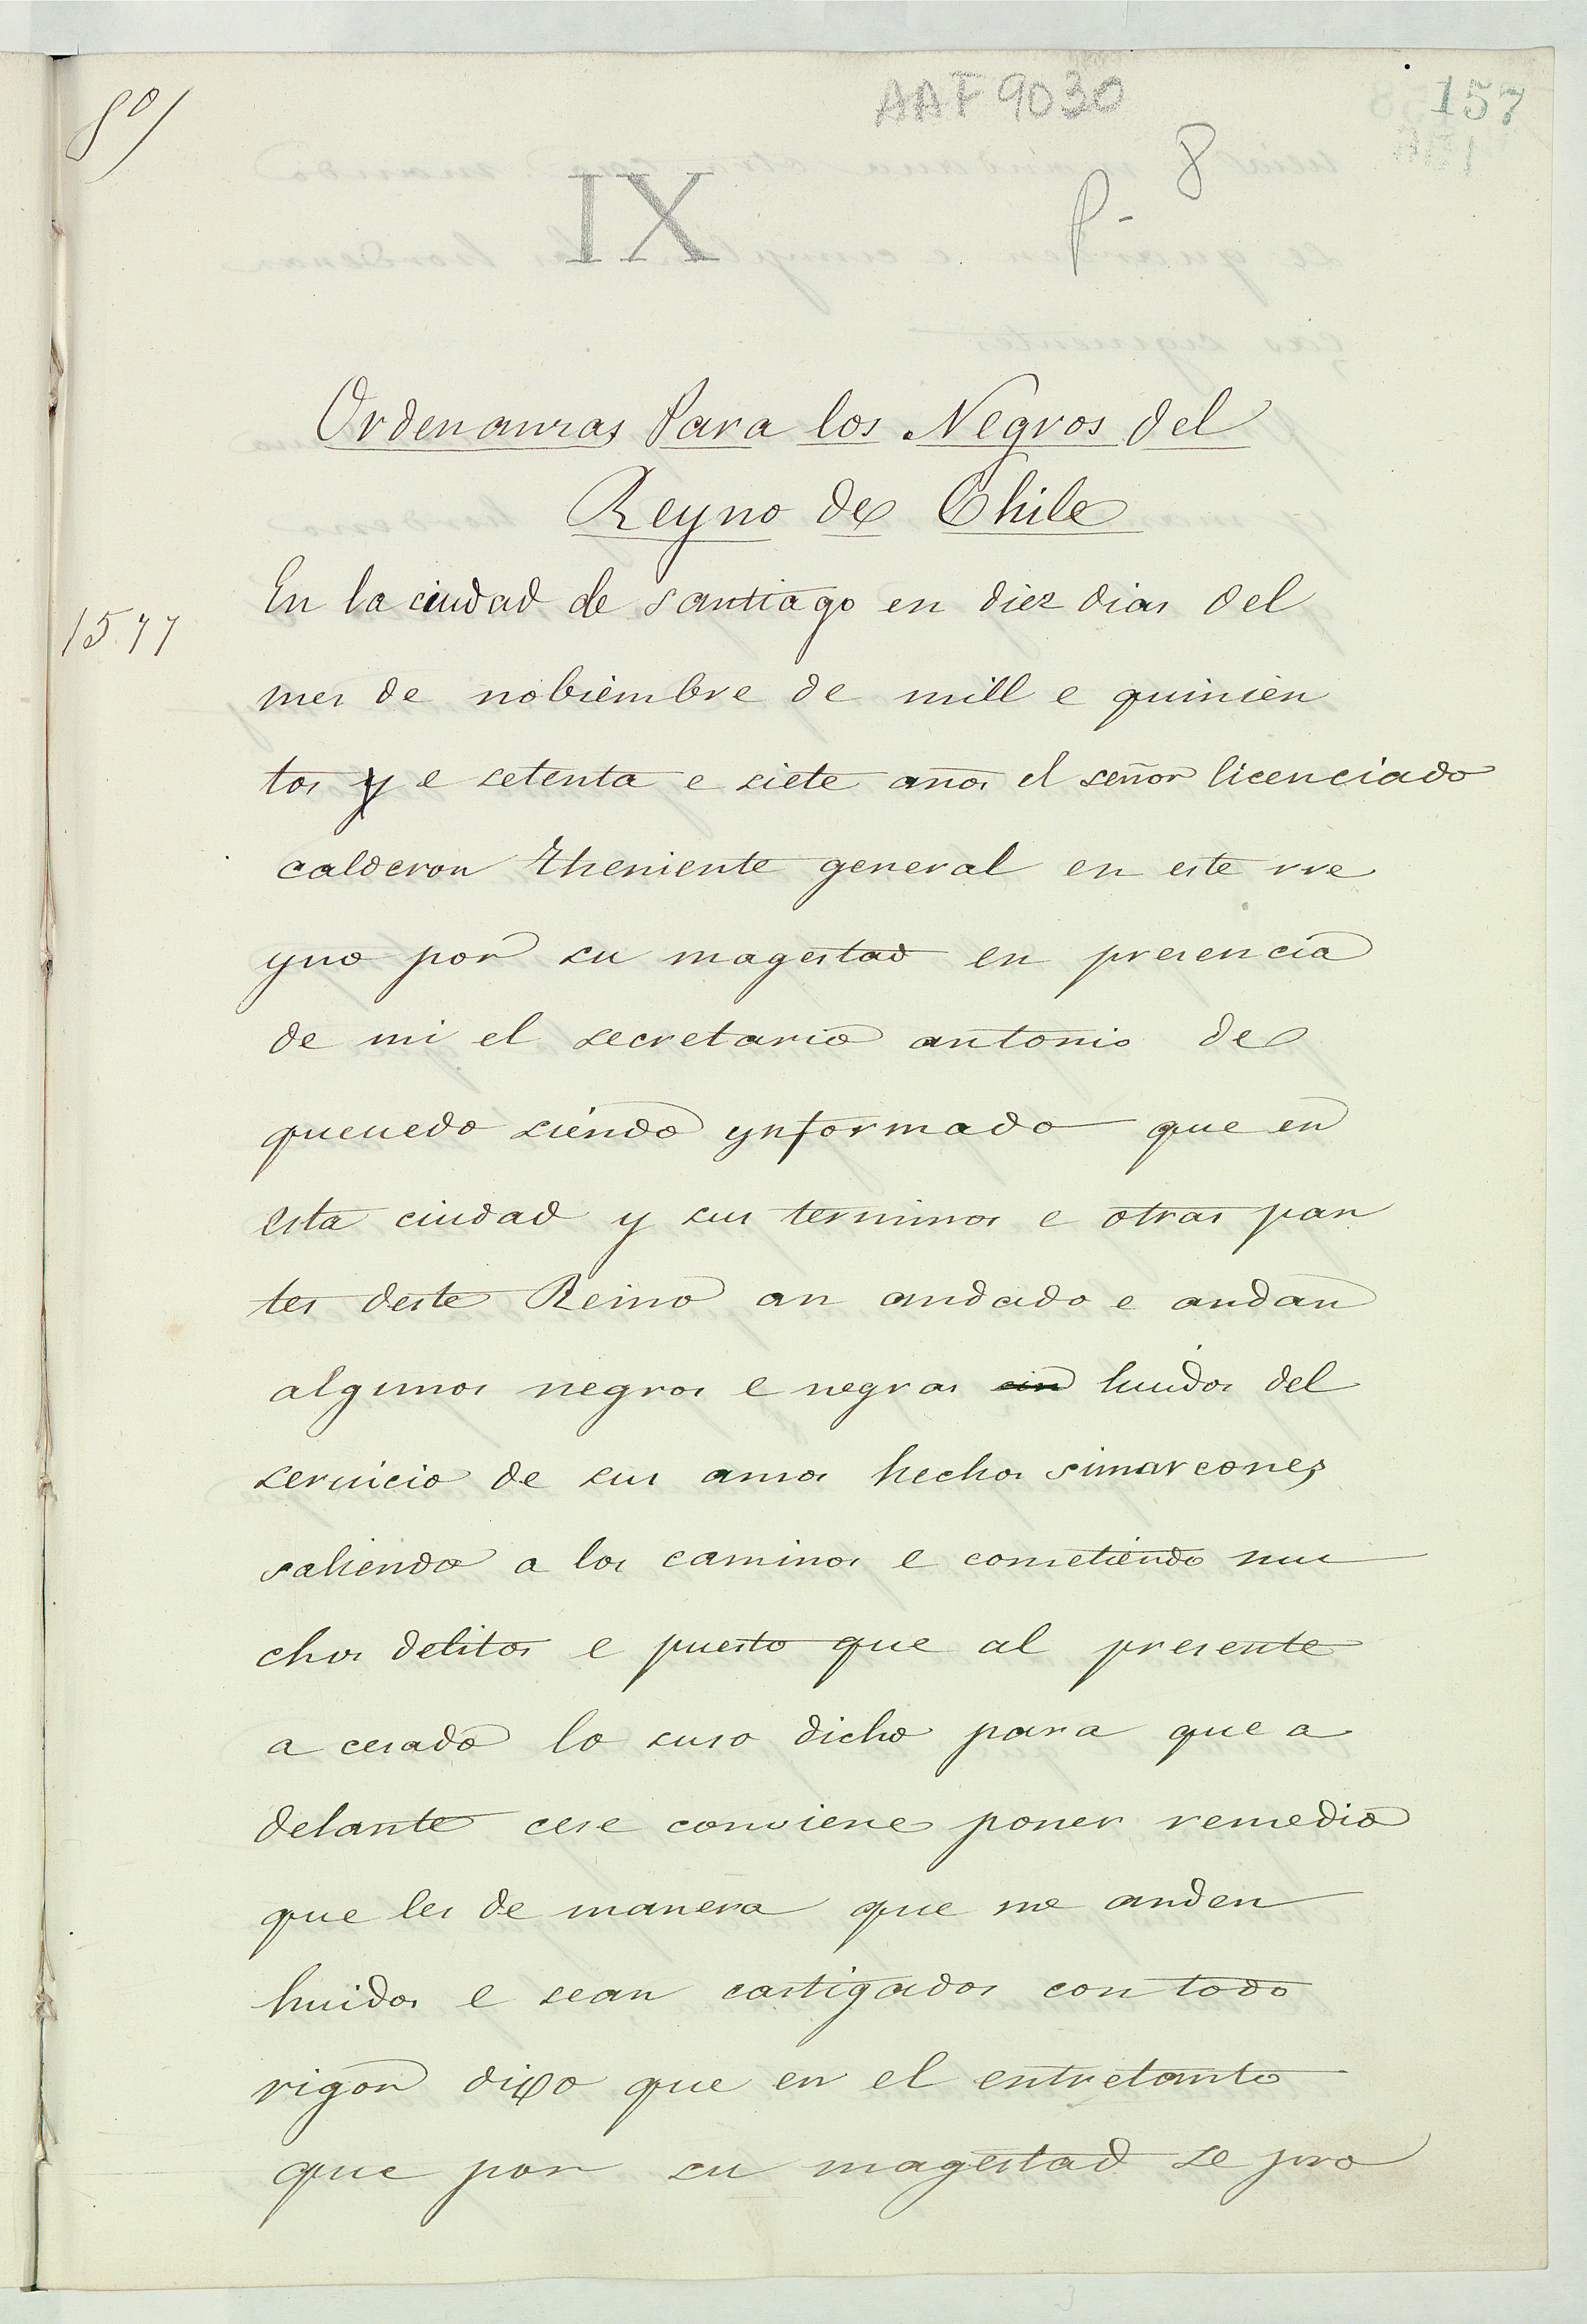 8º/
AAF 9030
157
8
P-
IX
Ordenanzas Para los Negros del
Reyno de Chile
1577
En la ciudad de santiago en diez dias del
mes de nobiembre de mill e quinien
tos y e setenta e siete años el señor licenciado
calderon theniente general en este rre
yno por su magestad en presencia
de mi el secretario antonio de
queuedo siendo ynformado que en
esta ciudad y sus terminos e otras par
tes deste Reino an andado e andan
algunos negros e negras huidos del
seruicio de sus amos hechos simarcones
saliendo a los caminos e cometiendo mu
chos delitos e puesto que al presente
a cesado lo suso dicho para que a
delante cese conviene poner remedio
que les de manera que no anden
huidos e sean castigados con todo
rigor dixo que en el entretanto
que por su magestad se pro